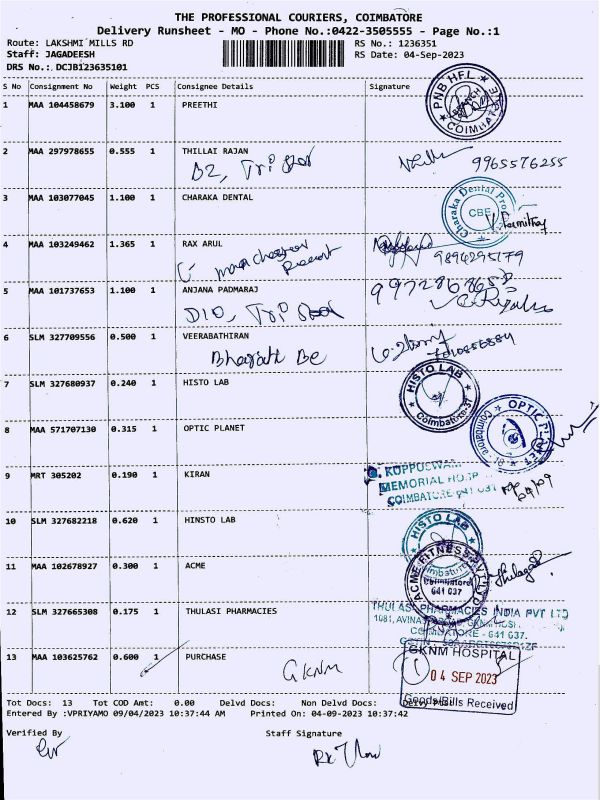 THE PROFESSIONAL COURIERS, COIMBATORE
Delivery Runsheet - MO - Phone No.:0422-3505555 - Page No.:1
Route: LAKSHMI MILLS RD
RS No.: 1236351
Staff: JAGADEESH
RS Date: 04-Sep-2023
DRS No.: DCJB123635101
S No Consignment No Weight PCS Consignee Details Signature
1 MAA 104458679 3.100 1 PREETHI
PNB HFL
COIMBATORE
2 MAA 297978655 0.555 1 THILLAI RAJAN
D2, Tri Star
9965576255
3 MAA 103077045 1.100 1 CHARAKA DENTAL
Charaka Dental
CBE
4 MAA 103249462 1.365 1 RAX ARUL
9894295179
5 MAA 101737653 1.100 1 ANJANA PADMARAJ
D10, Tri
6 SLM 327709556 0.500 1 VEERABATHIRAN
7 SLM 327680937 0.240 1 HISTO LAB
HISTO LAB
Coimbatore-37
8 MAA 571707130 0.315 1 OPTIC PLANET
OPTIC
Coimbatore
9 MRT 305202 0.190 1 KIRAN
MEMORIAL
COIMBATORE
10 SLM 327682218 0.620 1 HINSTO LAB
HISTO LAB
11 MAA 102678927 0.300 1 ACME
ACME FITNESS PVT LTD
Coimbatore
641 037
12 SLM 327665308 0.175 1 THULASI PHARMACIES
THULASI PHARMACIES INDIA PVT LTD
COIMBATORE - 641 037.
13 MAA 103625762 0.600 1 PURCHASE
GKNM
GKNM HOSPITAL
04 SEP 2023
Goods/Bills Received
Tot Docs: 13 Tot COD Amt: 0.00 Delvd Docs: Non Delvd Docs:
Entered By :VPRIYAMO 09/04/2023 10:37:44 AM Printed On: 04-09-2023 10:37:42
Verified By Staff Signature